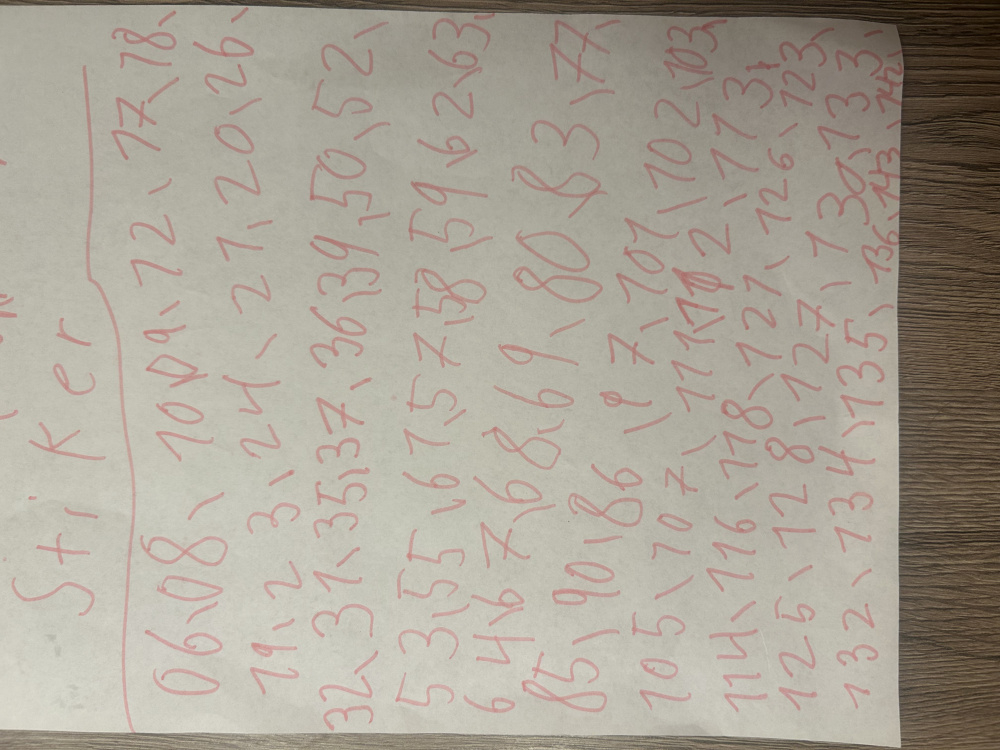 Sti Ker
06, 08, 10 09, 12, 17, 18,
19, 23, 24, 21, 20, 26,
32, 31, 35, 37, 36, 39, 50, 52,
53, 55, 61, 57, 58, 59, 62, 63,
64, 67, 68, 69, 80, 83, 77,
85, 90, 86, 97, 101, 102, 103,
105, 107, 111, 112, 113,
114, 116, 118, 121, 126, 123,
125, 128, 127, 130, 133,
132, 134, 135, 136, 143, 142,